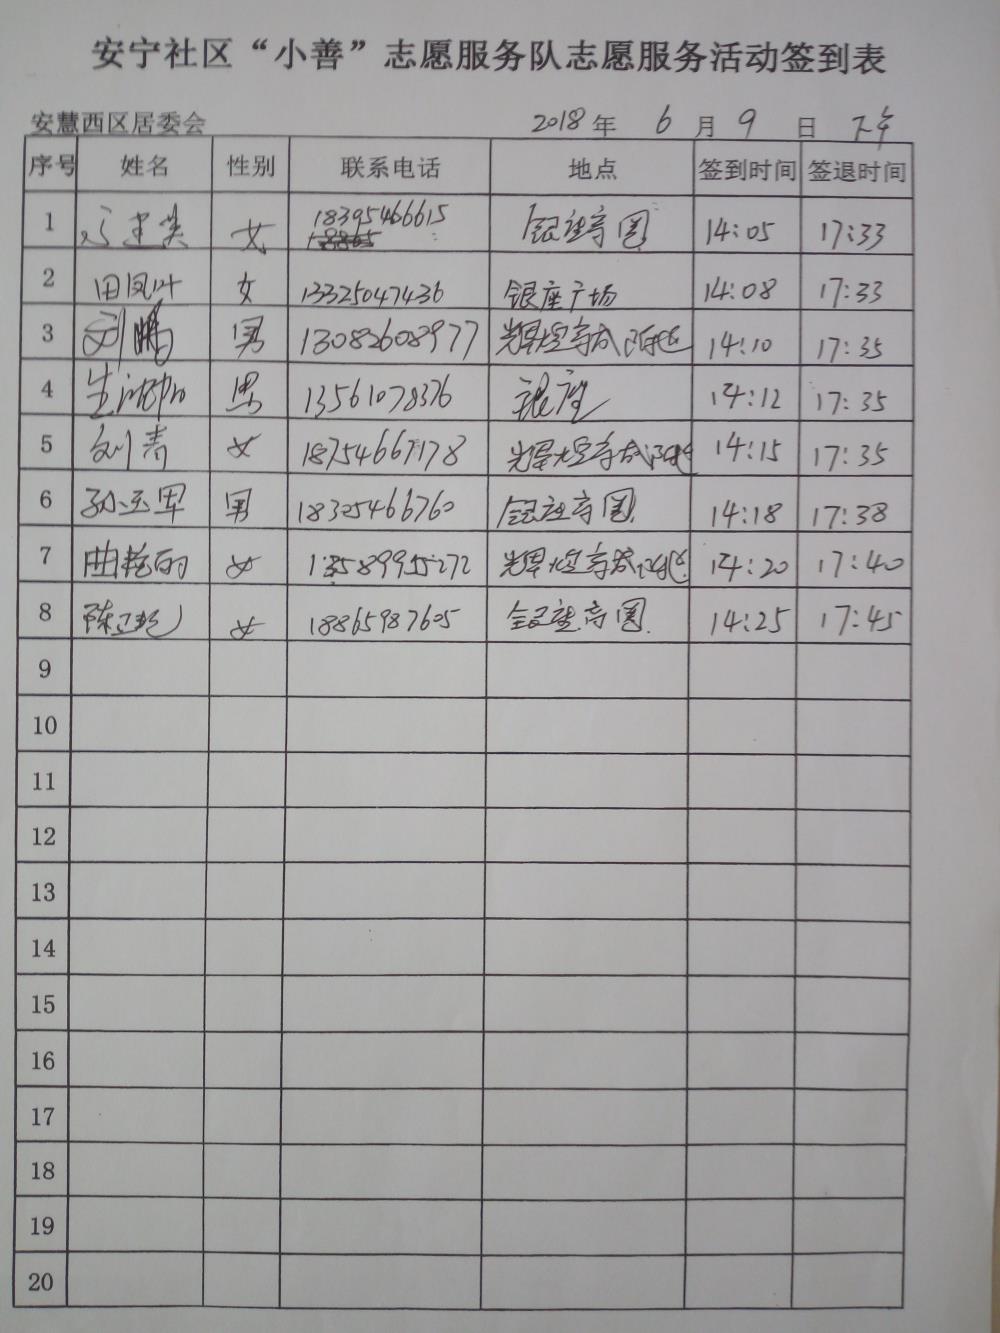 安宁社区“小善”志愿服务队志愿服务活动签到表
安慧西区居委会 2018年 6月 9日 下午
序号 姓名 性别 联系电话 地点 签到时间 签退时间
1 女 18395466615 银座商圈 14:05 17:33
2 田凤叶 女 13325047436 银座广场 14:08 17:33
3 刘鹏 男 13082608977 辉煌 14:10 17:35
4 男 13561078376 银座 14:12 17:35
5 刘青 女 18754667178 辉煌 14:15 17:35
6 孙玉军 男 18325466760 银座商圈 14:18 17:38
7 曲艳丽 女 13589955272 辉煌 14:20 17:40
8 陈 女 18865987605 银座商圈 14:25 17:45
9
10
11
12
13
14
15
16
17
18
19
20